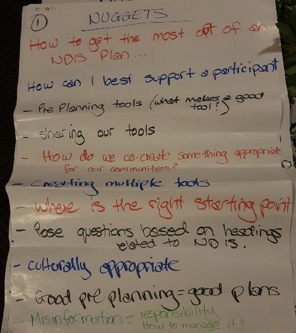 1
NUGGETS
How to get the most out of an
NDIS Plan...
How can I best support a participant
- Pre Planning tools (what makes a good
tool?)
- sharing our tools
- How do we co-create something appropriate
for our communities?
- Creating multiple tools
- Where is the right starting point
- Pose questions based on headings
related to NDIS.
- culturally appropriate
- Good pre planning = good plans
Misinformation = responsibility
How to manage it?